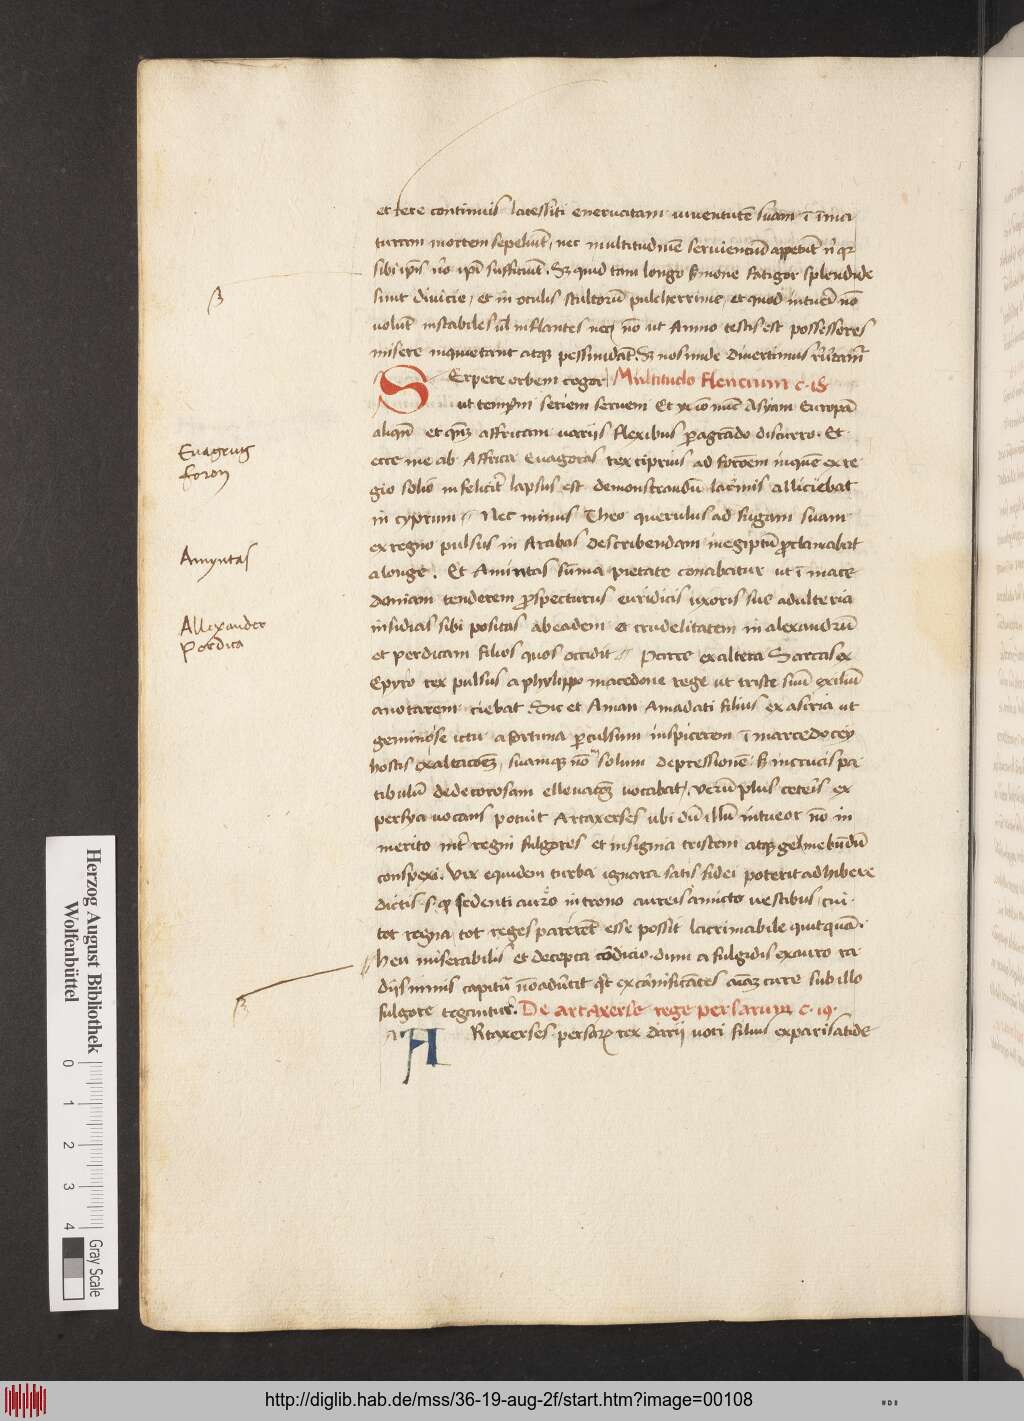 et fere continuis lacessiti eneruatam iuuentutē suam ī īma
turam mortem sepeliūt, nec multitudinē seruienciū appetūt
sibi ipīs nō ipī sufficiūt. Sȝ quid tam longo sermone fatigor splendide
sunt diuicie, et in oculis stultorū pulcherrime, et quod intueri nō
uolūt instabiles inflantes nec nō ut Anno testis est possessores
misere inquietant atqȝ pessūdāt. Sȝ nos unde diuertimus
SErpere orbem cogor Multitudo flencium c. 18
ut tempꝝ seriem seruem Et nūc Asyam Europā
aliqn̄ et affricam uariis flexibus pagrādo discurro. Et
ecce me ab Affrica Euagoras rex ciprius ad forōem inquē ex re
gio solio infelicit̄ lapsus est demonstrandū lacimis alliciebat
in cyprum Nec minus Theo querulus ad fugam suam
ex regno pulsus in Arabas describendam inegiptū proclamabat
a longe. Et Amintas sūma pietate conabatur ut ī mace
doniam tenderem prospecturus euridicis uxoris sue adulteria
insidias sibi positas ab eadem et crudelitatem in alexandrū
et perdicam filios quos occidit Parte ex altera Sarcas ex
Epyro rex pulsus a phylippo macedone rege ut triste suū exiliū
anotarem ciebat Sic et Aman Amadati filius ex asiria ut
geminose ictu a fortuna pculsum inspicerem ī marcedocey
hostis exaltacōēȝ, suamqȝ nō solum depressionē sȝ in crucis pa
tibulū dedecorosam elleuacōȝ uocabat, uerū plus ceteris ex
persya uocans potuit Artaxerses ubi dū illū intueor nō in
merito int̄ regni fulgores et insignia tristem atqȝ gelmebūdū
conspexi. Vix equidem turba ignara satis fidei poterit adhibere
dictis .s. qȝ sedenti auro in trono aureis amicto uestibus, cui
tot regna tot reges parerēt esse possit lacrimabile quitquā.
heu miserabilis et decepta cōdicio. dum a fulgidis exauro ra
diis nimis capitū nō aduertit qt̄ excārnificātes curesub illo
fulgore teguntur. De artaxerse rege persarum c. 19.
ARtaxerses persarꝝ rex darij noti filius exparisatide
Euagrius
foron
Amyntas
Allexander
Perdica
Herzog August Bibliothek
Wolfenbüttel
0 1 2 3 4
Gray Scale
http://diglib.hab.de/mss/36-19-aug-2f/start.htm?image=00108